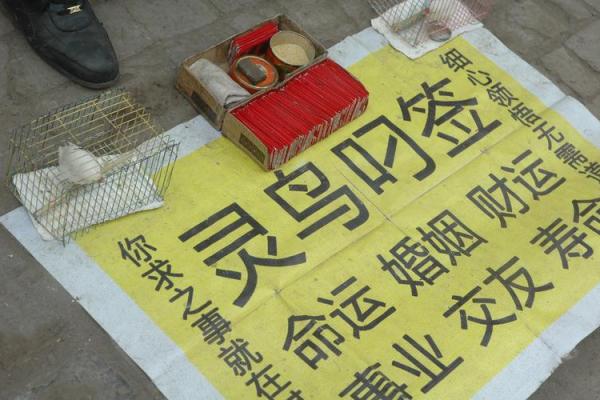 灵鸟叼签
细心领悟无需
命运 婚姻 财运
事业 交友 寿命
你求之事就在